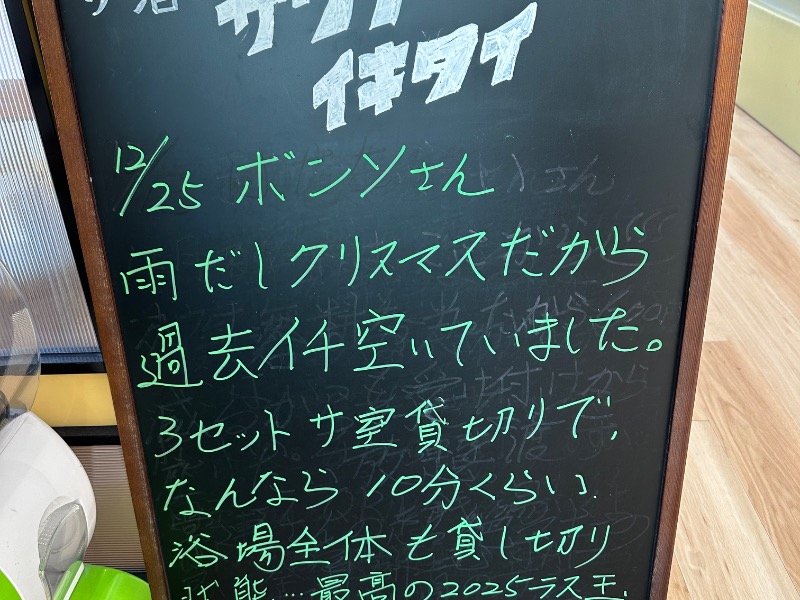 サ活
サウナ
イキタイ
12/25 ボンソさん
雨だしクリスマスだから
過去イチ空いていました。
3セットサ室貸切りで、
なんなら10分くらい
浴場全体も貸し切り
状態…最高の2025ラス